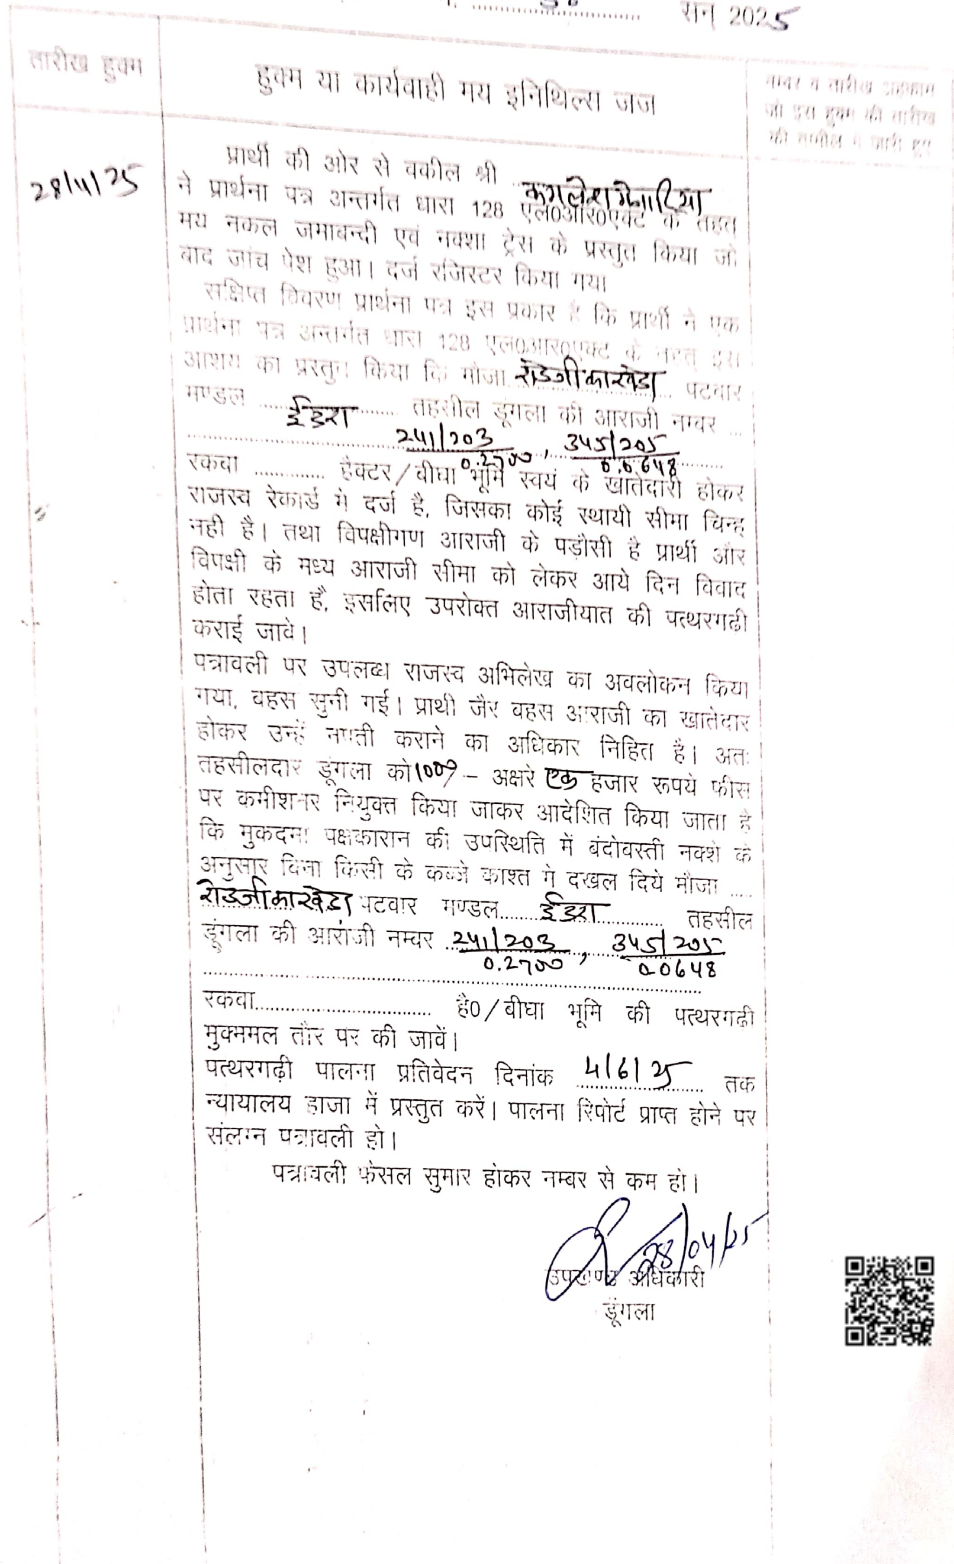 सन् 2025
तारीख हुक्म
हुक्म या कार्यवाही मय इनिथिल्स जज
नम्बर व तारीख अहकाम
जो इस हुक्म की तारीख
की तामील में जारी हुए
28/4/25
प्रार्थी की ओर से वकील श्री कमलेश
ने प्रार्थना पत्र अन्तर्गत धारा 128 एल0आर0एक्ट के तहत
मय नकल जमाबन्दी एवं नक्शा ट्रेस के प्रस्तुत किया जो
बाद जांच पेश हुआ। दर्ज रजिस्टर किया गया
सक्षिप्त विवरण प्रार्थना पत्र इस प्रकार है कि प्रार्थी ने एक
प्रार्थना पत्र अन्तर्गत धारा 128 एल0आर0एक्ट के तहत इस
आशय का प्रस्तुत किया कि मौजा रोडजीकाखेडा पटवार
मण्डल ईडरा तहसील डूंगला की आराजी नम्बर ...
241/203 , 345/205
0.2700 0.0648
रकवा ............ हैक्टर/बीघा भूमि स्वयं के खातेदारी होकर
राजस्व रेकार्ड में दर्ज है, जिसका कोई स्थायी सीमा चिन्ह
नही है। तथा विपक्षीगण आराजी के पड़ौसी है प्रार्थी और
विपक्षी के मध्य आराजी सीमा को लेकर आये दिन विवाद
होता रहता है, इसलिए उपरोक्त आराजीयात की पत्थरगढी
कराई जावे।
पत्रावली पर उपलब्ध राजस्व अभिलेख का अवलोकन किया
गया, वहस सुनी गई। प्राथी जैर वहस आराजी का खातेदार
होकर उन्हें नपती कराने का अधिकार निहित है। अतः
तहसीलदार डूंगला को 1000/- अक्षरे एक हजार रूपये फीस
पर कमीश्नर नियुक्त किया जाकर आदेशित किया जाता है
कि मुकदमा पक्षकारान की उपस्थिति में बंदोवस्ती नक्शे के
अनुसार बिना किसी के कब्जे काश्त मे दखल दिये मौजा ....
रोडजीकाखेडा पटवार मण्डल....... ईडरा ............. तहसील
डूंगला की आरांजी नम्बर 241/203 , 345/205
0.2700 0.0648
रकवा............................ है0/बीघा भूमि की पत्थरगढी
मुक्ममल तौर पर की जावें।
पत्थरगढ़ी पालना प्रतिवेदन दिनांक 4/6/25 तक
न्यायालय हाजा में प्रस्तुत करें। पालना रिपोर्ट प्राप्त होने पर
संलग्न पत्रावली हो।
पत्रावली फैसल सुमार होकर नम्बर से कम हो।
28/04/25
उपखण्ड अधिकारी
डूंगला